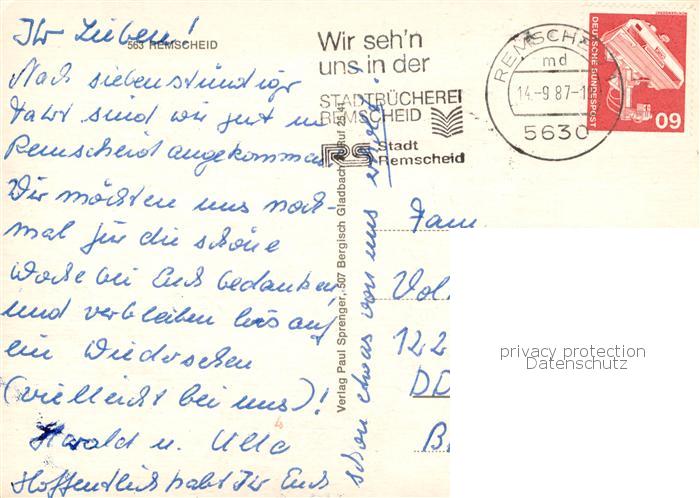 Ihr Lieben!
563 REMSCHEID
Nach siebenstündiger
Fahrt sind wir gut in
Remscheid angekommen.
Wir möchten uns noch-
mal für die schöne
Woche bei Euch bedanken
und verbleiben bis auf
ein Wiedersehen
(vielleicht bei uns)!
Harald u. Ulla
Hoffentlich habt Ihr Euch
schon etwas von uns erholt!
Verlag Paul Sprenger, 507 Bergisch Gladbach
Wir seh'n
uns in der
STADTBÜCHEREI
REMSCHEID
RS Stadt
Remscheid
REMSCHEID
md
14.-9.87-1
5630
DEUTSCHE BUNDESPOST
60
Fam.
Vol
122
DD
B
privacy protection
Datenschutz